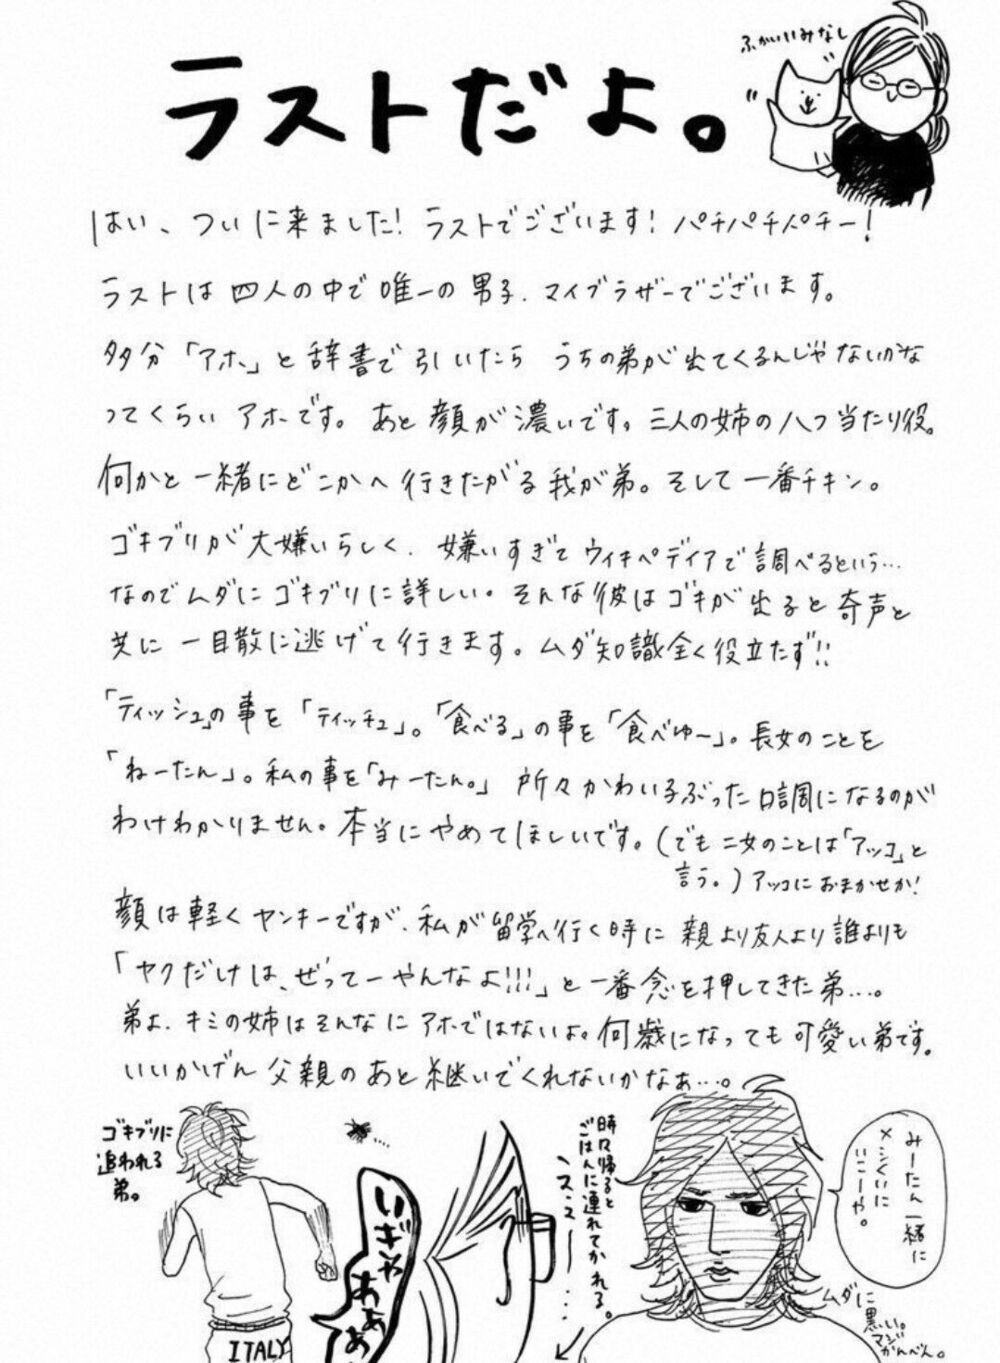 ラストだよ。
ふかいいみなし
はい、ついに来ました！ラストでございます！パチパチパチー！
ラストは四人の中で唯一の男子、マイブラザーでございます。
多分「アホ」と辞書で引いたら うちの弟が出てくるんじゃないかな
ってくらい アホです。あと顔が濃いです。三人の姉の八つ当たり役。
何かと一緒にどこかへ行きたがる我が弟。そして一番チキン。
ゴキブリが大嫌いらしく、嫌いすぎてウィキペディアで調べるという…
なのでムダにゴキブリに詳しい。そんな彼はゴキが出ると奇声と
共に一目散に逃げて行きます。ムダ知識全く役立たず!!
「ティッシュ」の事を「ティッチュ」。「食べる」の事を「食べゆ〜」。長女のことを
「ねーたん」。私の事を「みーたん。」所々かわい子ぶった口調になるのが
わけわかりません。本当にやめてほしいです。(でも二女のことは「アッコ」と
言う。)アッコにおまかせか！
顔は軽くヤンキーですが、私が留学へ行く時に親より友人より誰よりも
「ヤクだけは、ぜってーやんなよ!!!」と一番念を押してきた弟…。
弟よ、キミの姉はそんなにアホではないよ。何歳になっても可愛い弟です。
いいかげん父親のあと継いでくれないかなぁ…。
ゴキブリに
追われる
弟。
いぎゃ
あぁ
ITALY
時々帰ると
ごはんに連れてかれる。
みーたん一緒に
メシくいに
いこーや。
ムダに
黒い。
マジ
かんべん。